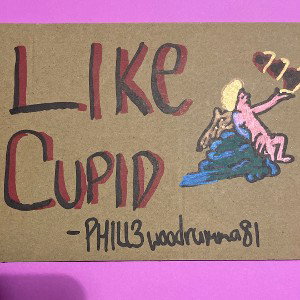 LIKE
CUPID
-PHIll3woodrumma81